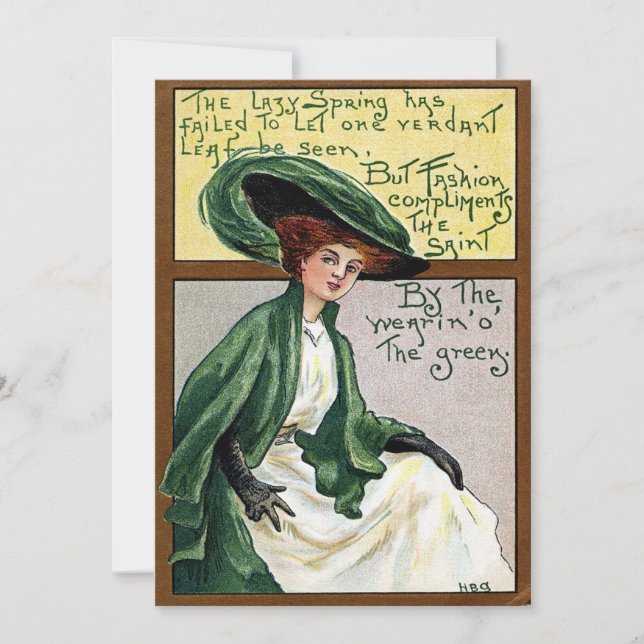 The Lazy Spring has
failed to let one verdant
leaf be seen,
But Fashion
compliments
The
Saint
By The
wearin' o'
The green.
HBG